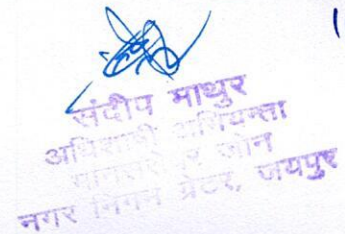 संदीप माथुर
अधिशाषी अभियन्ता
मानसरोवर जोन
नगर निगम ग्रेटर, जयपुर